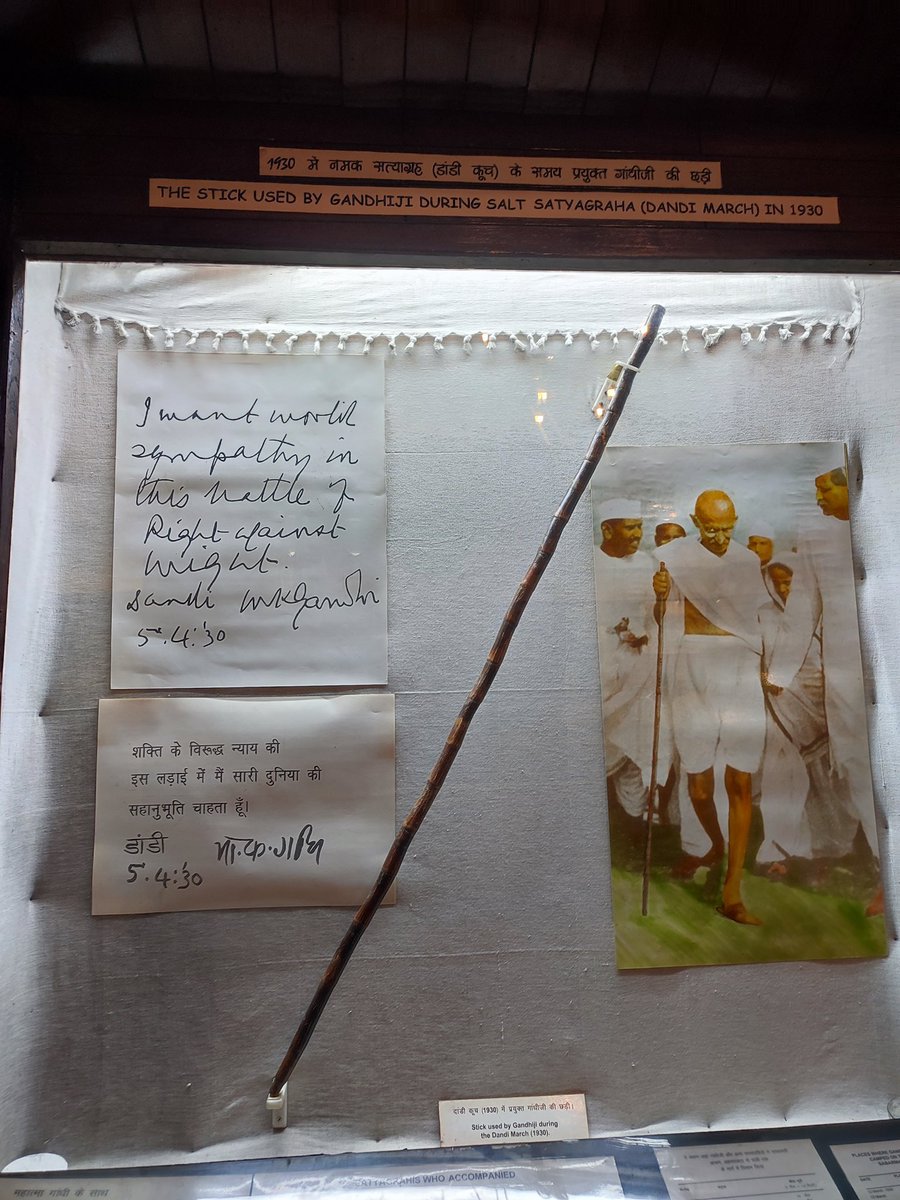 1930 मे नमक सत्याग्रह (डांडी कूच) के समय प्रयुक्त गांधीजी की छड़ी
THE STICK USED BY GANDHIJI DURING SALT SATYAGRAHA (DANDI MARCH) IN 1930
I want world
sympathy in
this battle of
Right against
might.
Dandi MKGandhi
5.4.'30
शक्ति के विरूद्ध न्याय की
इस लड़ाई में मैं सारी दुनिया की
सहानुभूति चाहता हूँ।
डांडी मो.क.गांधी
5.4.'30
दांडी कूच (1930) में प्रयुक्त गांधीजी की छड़ी।
Stick used by Gandhiji during
the Dandi March (1930).
महात्मा गांधी के साथ
SATYAGRAHIS WHO ACCOMPANIED
PLACES WHERE
DATE